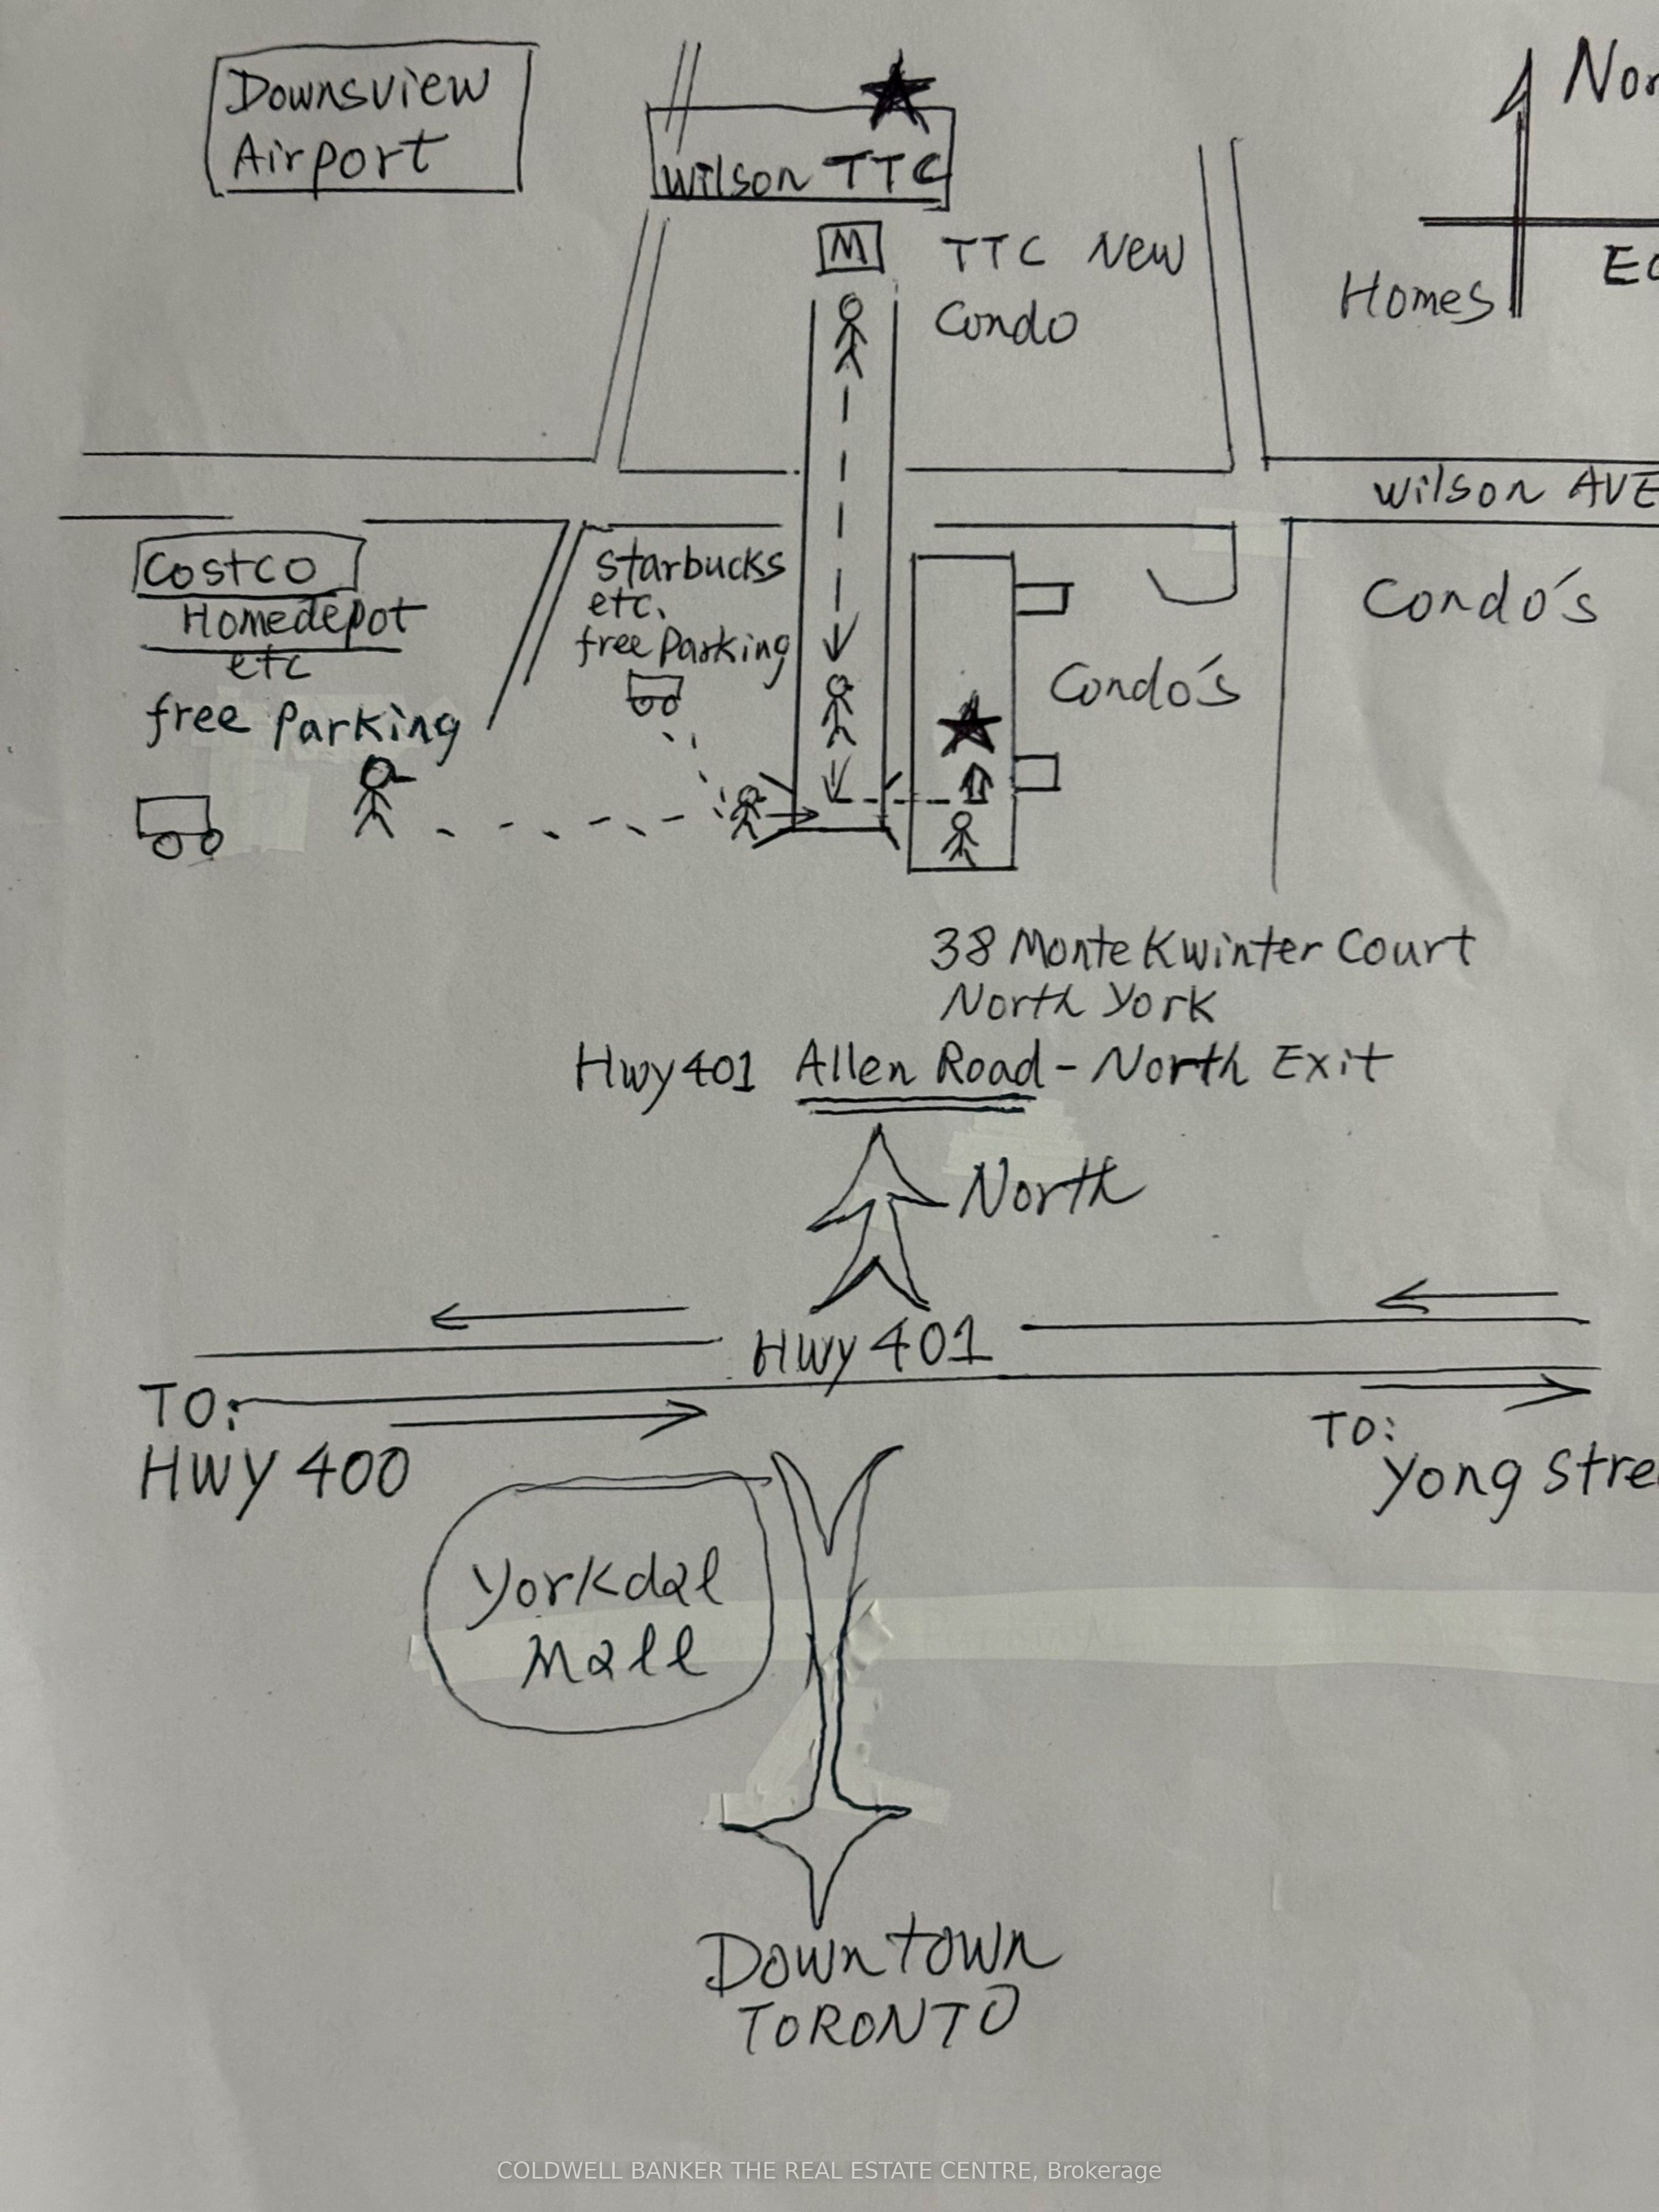 Downsview
Airport
Wilson TTC
M
TTC New
Condo
Homes
Wilson AVE
Costco
Homedepot
etc
free Parking
Starbucks
etc.
free Parking
Condo's
Condo's
38 Monte Kwinter Court
North York
Hwy 401 Allen Road - North Exit
North
HWY 401
TO:
HWY 400
TO:
Yong Stre
Yorkdal
Mall
Downtown
TORONTO
COLDWELL BANKER THE REAL ESTATE CENTRE, Brokerage